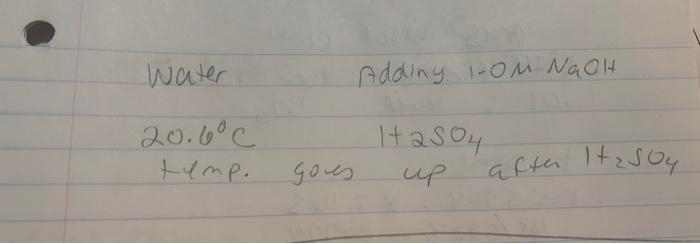 Water Adding 1.0M NaOH
20.6°C H2SO4
temp. goes up after H2SO4